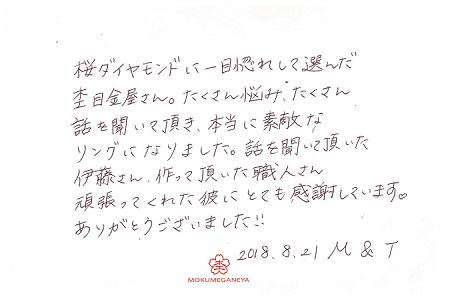 桜ダイヤモンドに一目惚れして選んだ
杢目金屋さん。たくさん悩み、たくさん
話を聞いて頂き、本当に素敵な
リングになりました。話を聞いて頂いた
伊藤さん、作って頂いた職人さん
頑張ってくれた彼にとても感謝しています。
ありがとうございました!!
2018.8.21 M & T
MOKUMEGANEYA